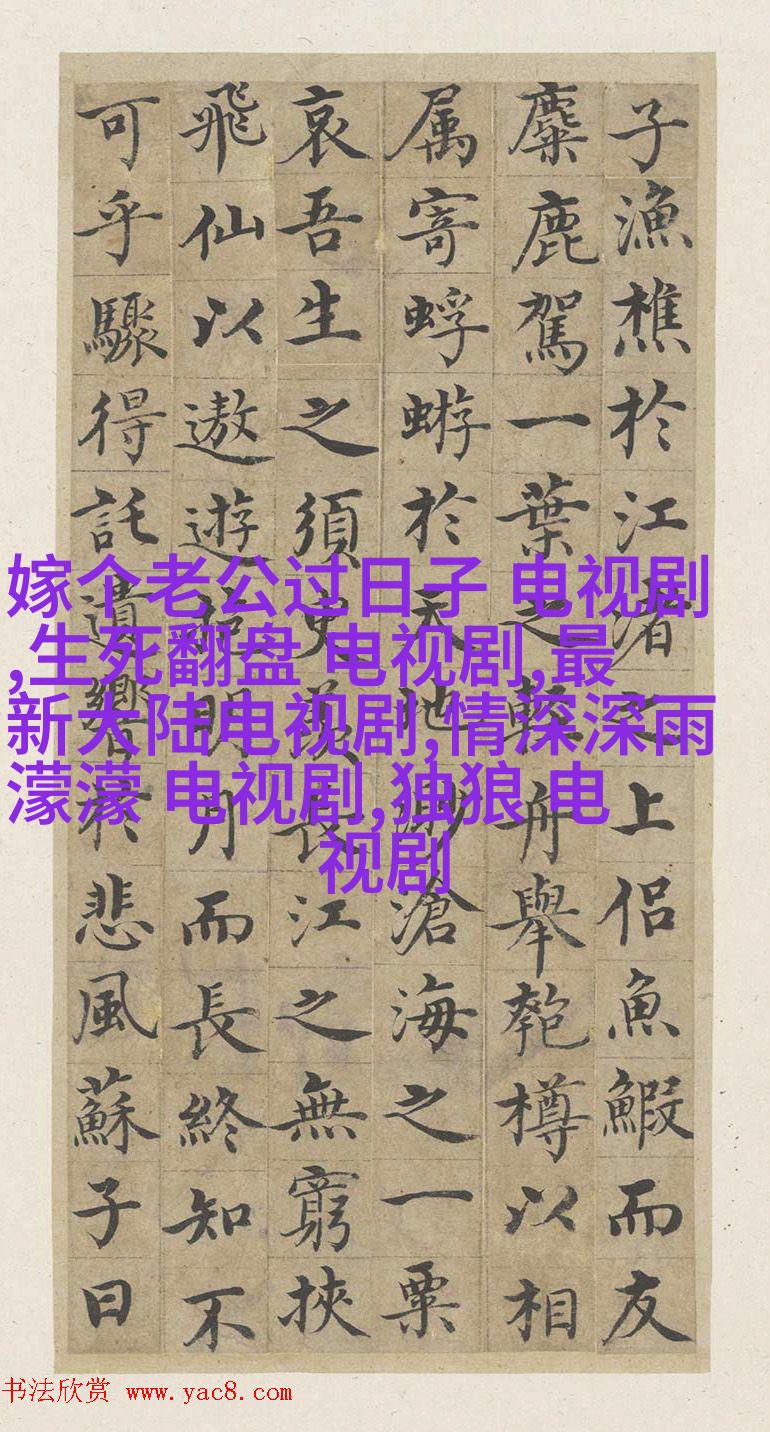 子漁樵於江渚之上侶魚鰕而友
麋鹿駕一葉之輕舟舉匏樽以相
属寄蜉蝣於天地眇滄海之一粟
哀吾生之須臾羨長江之無窮挾
飛仙以遨遊抱明月而長終知不
可乎驟得託遺響於悲風蘇子曰
嫁个老公过日子 电视剧
,生死翻盘 电视剧,最
新大陆电视剧,情深深雨
濛濛 电视剧,独狼 电
视剧
书法欣赏 www.yac8.com